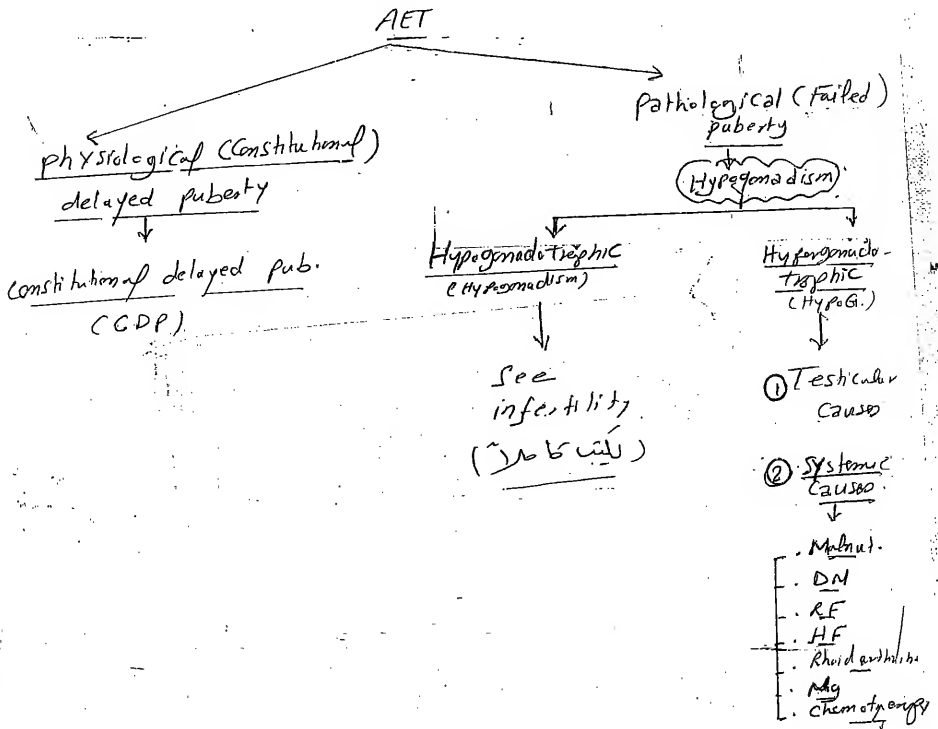 AET
physiological (Constitutional)
delayed puberty
constitutional delayed pub.
(CDP)
pathological (Failed)
puberty
Hypogonadism
Hypogonadotrophic
(Hypogonadism)
See
infertility
(تكتب كاملاً)
Hypergonado-
trophic
(HypoG.)
① Testicular
Causes
② Systemic
Causes
. Malnut.
. DM
. RF
. HF
. Rhuid arthritis
. Chemotherapy